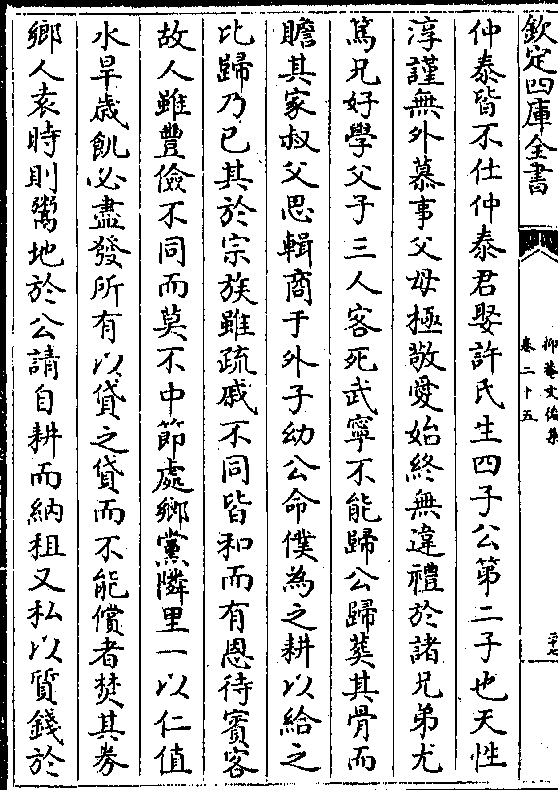 欽定四庫全書
抑菴文後集
卷二十五
仲泰皆不仕仲泰君娶許氏生四子公第二子也天性
淳謹無外慕事父母極敬愛始終無違禮於諸兄弟尤
篤兄好學父子三人客死武寧不能歸公歸葬其骨而
贍其家叔父思輯商于外子幼公命僕為之耕以給之
比歸乃已其於宗族雖疏戚不同皆和而有恩待賓客
故人雖豐儉不同而莫不中節處鄉黨隣里一以仁值
水旱歲飢必盡發所有以貸之貸而不能償者焚其券
鄉人袁時則鬻地於公請自耕而納租又私以質錢於